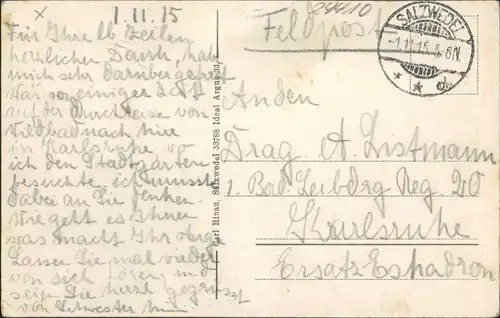 1.11.15
Für Ihre lb Zeilen
herzlichen Dank, hab
mich sehr darüber gefreut
War vor einiger Zeit
auf der Durchreise von
Wildbad nach hier
in Karlsruhe, wo
ich den Stadtgarten
besuchte, ich musste
dabei an Sie denken.
Wie geht es Ihnen
was macht Ihr
Lassen Sie mal wieder
von sich hören, und
seien Sie herzl gegrüsst
von Schwester
Carl Rinau, Salzwedel 53788 Ideal Argus 33
Feldpost
SALZWEDEL
-1.11.15. 5-6N.
An den
Drag A. Listmann
1. Bad Leibdrg Reg 20
Karlsruhe
Ersatz Eskadron